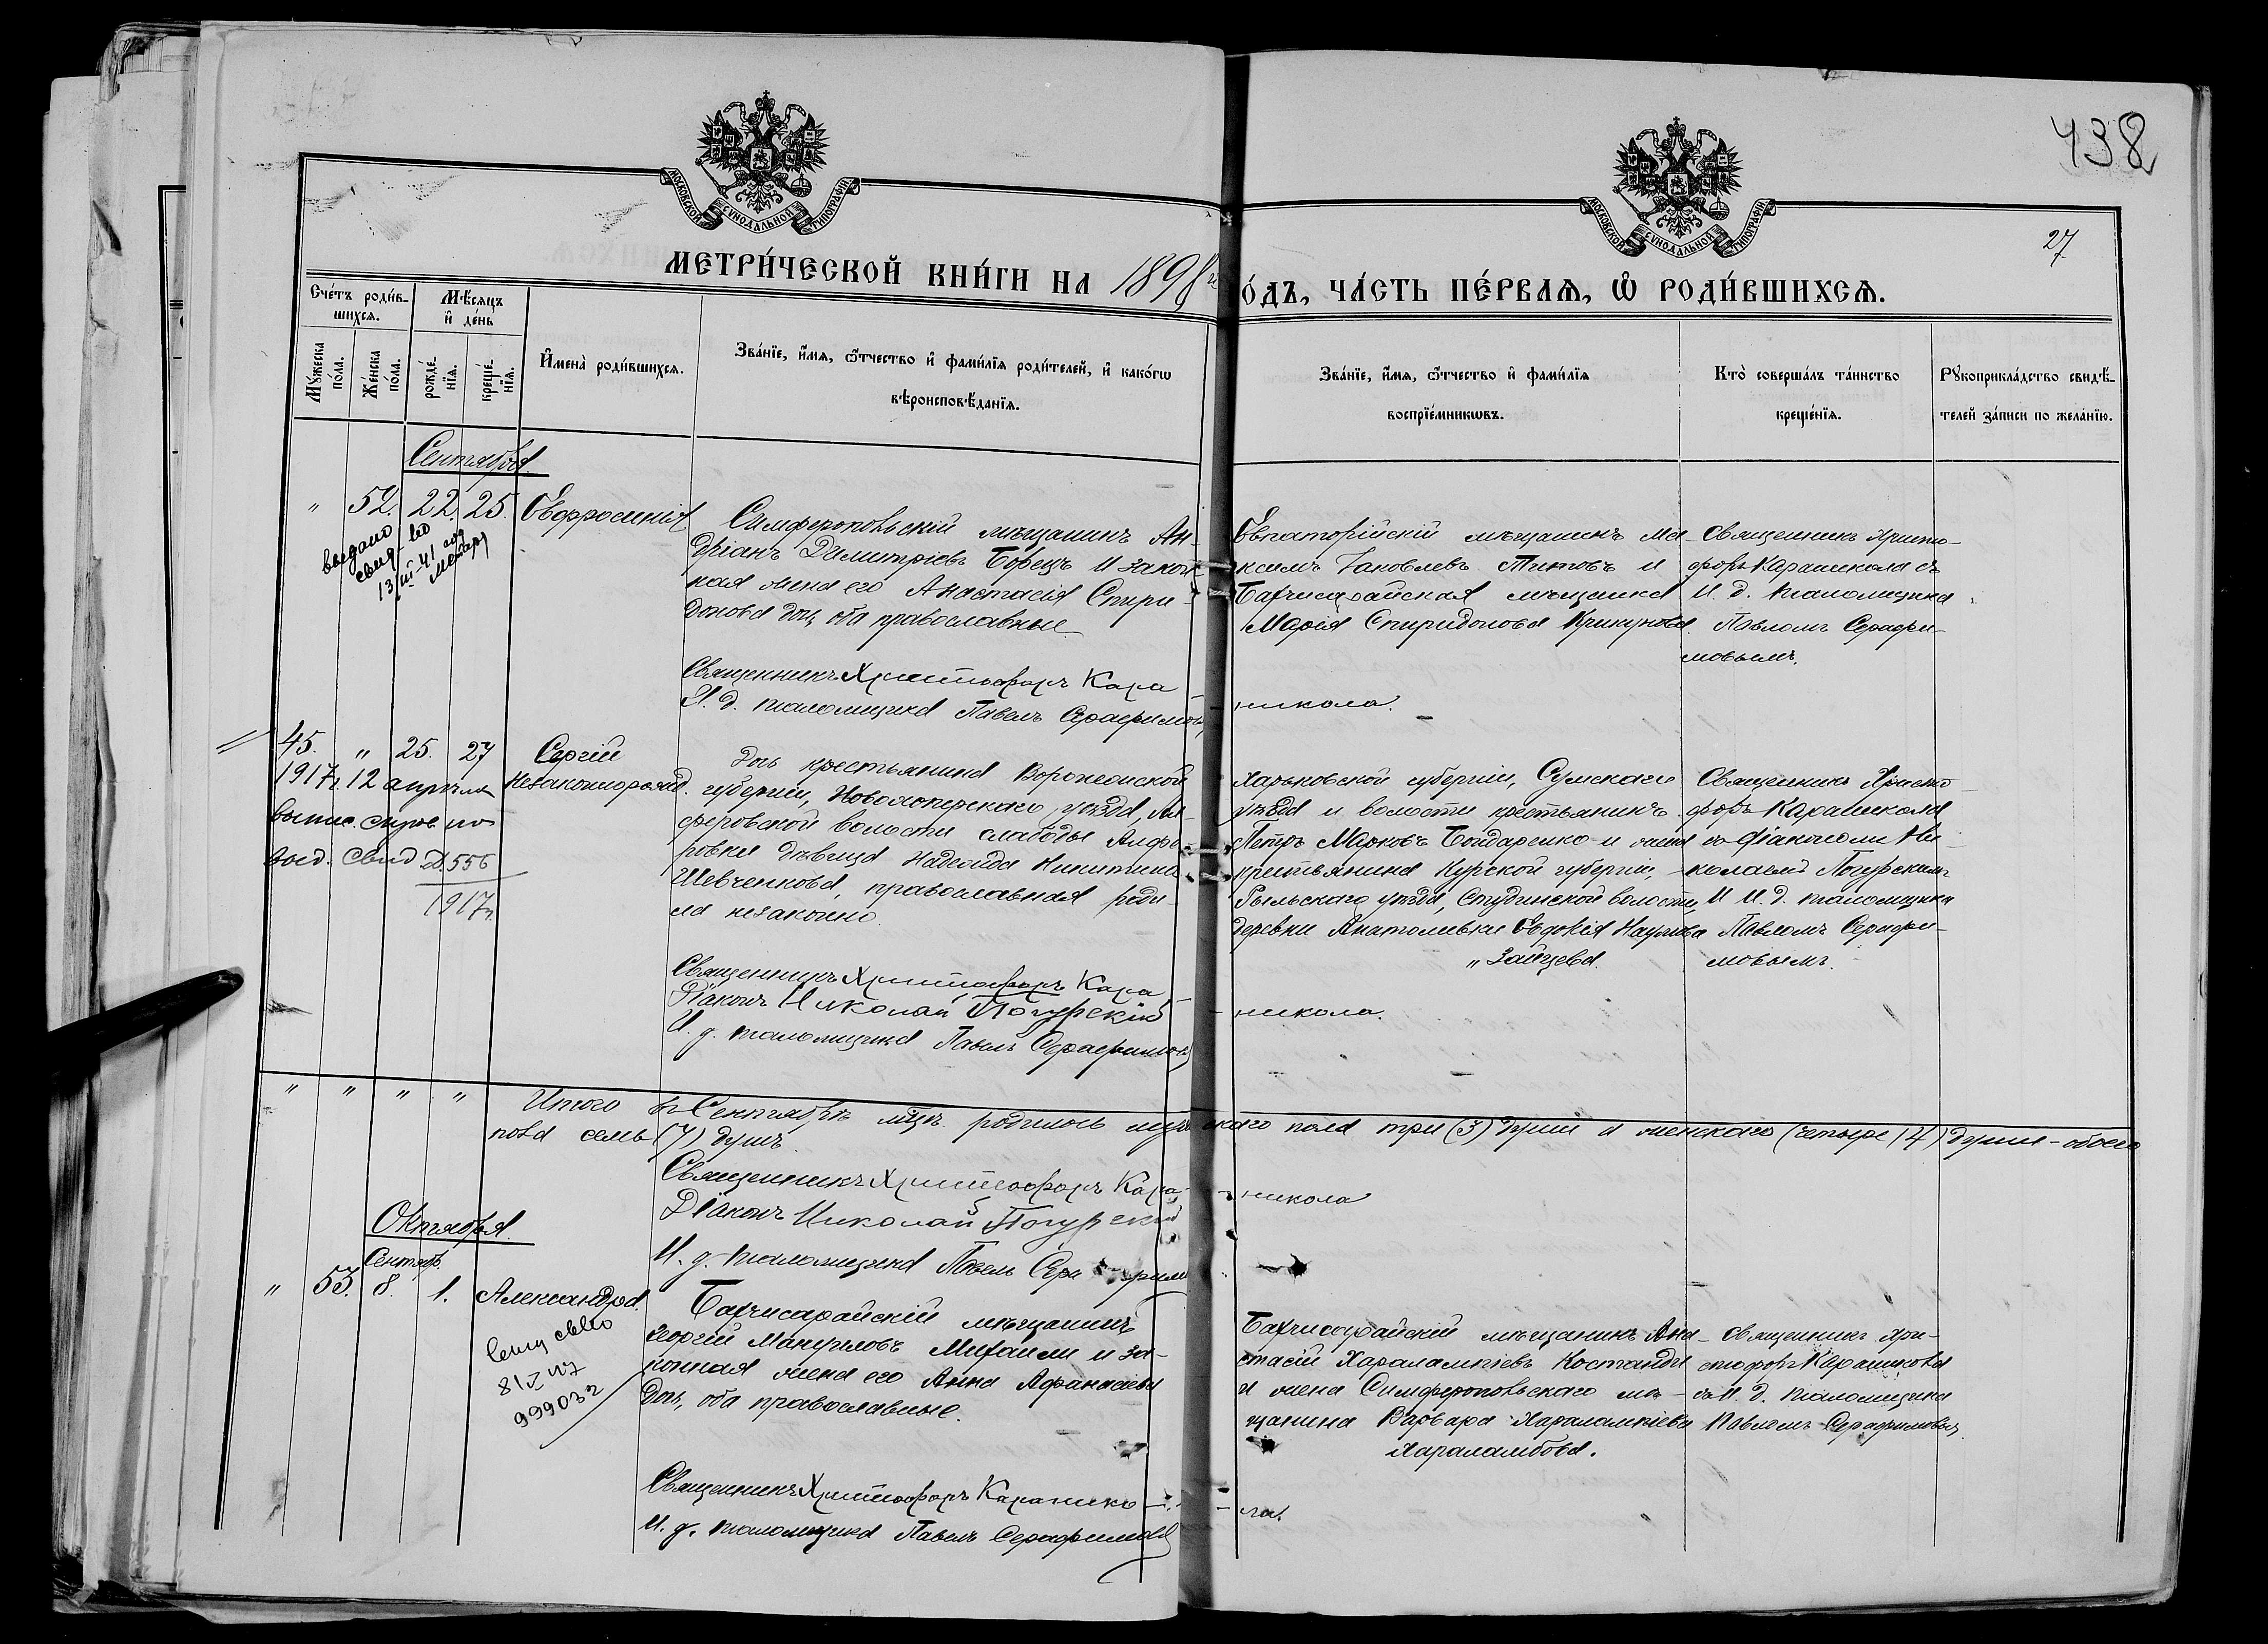 438
27
МОСКОВСКОЙ СѴНОДАЛЬНОЙ ТИПОГРАФІИ.
МОСКОВСКОЙ СѴНОДАЛЬНОЙ ТИПОГРАФІИ.
МЕТРИ́ЧЕСКОЙ КНИ́ГИ НА 1898 г
О́ДЪ, ЧА́СТЬ ПЕ́РВАѦ, Ѡ҆ РОДИ́ВШИХСѦ.
Сче́тъ роди́в-
шихсѧ.
Мѣ́сѧцъ
и҆ де́нь
Мꙋ́жеска
по́ла.
Же́нска
по́ла.
рожде́-
нїѧ.
креще́-
нїѧ.
И҆мена̀ роди́вшихсѧ.
Зва́нїе, и҆́мѧ, ѻ҆́тчество и҆ фами́лїѧ роди́телей, и҆ како́гѡ
вѣроисповѣ́данїѧ.
Зва́нїе, и҆́мѧ, ѻ҆́тчество и҆ фами́лїѧ
воспрїе́мникѡвъ.
Кто̀ соверша́лъ та́инство
креще́нїѧ.
Рꙋкоприкла́дство свидѣ́-
телей за́писи по жела́нїю.
Сентября.
" 52. 22. 25. Евфросинія
выдано
свид-во
13/III-41 год
Симферопольскій мѣщанинъ Ан-
дріанъ Димитріевъ Борецъ и закон-
ная жена его Анастасія Спири-
донова доч, оба православные
Евпаторійскій мѣщанинъ Ма-
ксимъ Яковлевъ Титовъ и
Бахчисарайская мѣщанка
Марія Спиридонова Крикунова.
Священникъ Христо-
форъ Караникола съ
И. д. псаломщика
Павломъ Серафи-
мовымъ.
Священникъ Христофоръ Кара-
- никола.
И. д. псаломщика Павелъ Серафимовъ
45. " 25. 27 Сергій
Незаконнорожд.
1917 г. 12 апрѣля
выд. свид № 556
1917 г.
Дочь крестьянина Воронежской
губерніи, Новохоперскаго уѣзда, Ал-
феровской волости слободы Алфе-
ровки дѣвица Надежда Никитина
Шевченкова, православная роди-
ла незаконно.
Харьковской губерніи, Сумскаго
уѣзда и волости крестьянинъ
Петръ Марковъ Бондаренко и жена
крестьянина Курской губерніи,
Рыльскаго уѣзда, Студинской волости,
деревни Анатолевки Евдокія Наумова
" Зайцева.
Священникъ Христо-
форъ Караникола
съ діакономъ Ни-
колаемъ Погурскимъ
и И. д. псаломщика
Павломъ Серафи-
мовымъ.
Священникъ Христофоръ Кара-
- никола.
Діаконъ Николай Погурскій
И. д. псаломщика Павелъ Серафимовъ
" " " " Итого въ Сентябрѣ мѣц. родилось мужскаго пола три (3) души и женскаго (четыре (4) души - обоего
пола семь (7) душъ.
Священникъ Христофоръ Кара-
- никола
Діаконъ Николай Погурскій
И. д. псаломщика Павелъ
Октября.
Сентяб.
" 53. 8. 1. Александра.
Бахчисарайскій мѣщанинъ
Георгій Мануиловъ Михаили и за-
конная жена его Анна Афанасіева
доч, оба православные.
Бахчисарайскій мѣщанинъ Ана-
стасій Харалампіевъ Костанди
и жена Симферопольскаго мѣ-
щанина Варвара Харалампіева
Хараламбова.
Священникъ Хри-
стофоръ Караникола
съ И. д. псаломщика
Павломъ Серафимовымъ.
Священникъ Христофоръ Караnико-
- ла.
И. д. псаломщика Павелъ Серафимовъ